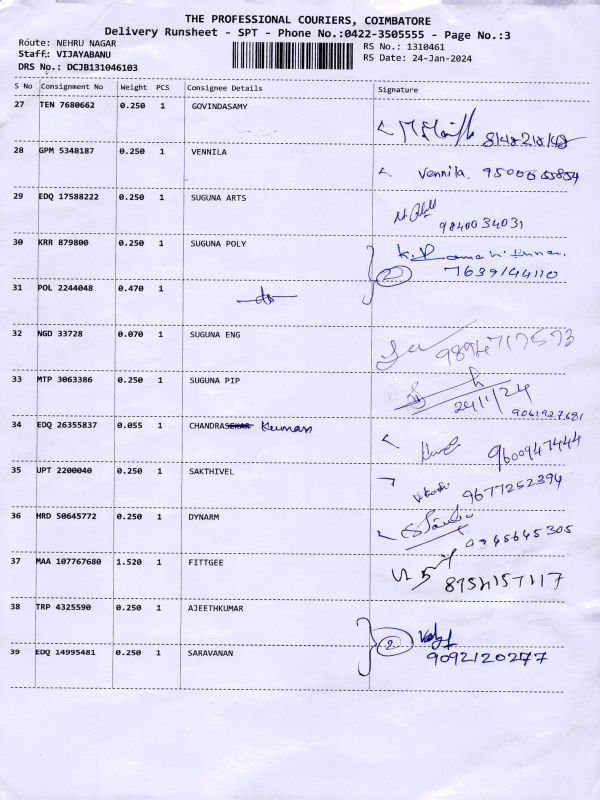 THE PROFESSIONAL COURIERS, COIMBATORE
Delivery Runsheet - SPT - Phone No.:0422-3505555 - Page No.:3
Route: NEHRU NAGAR
Staff: VIJAYABANU
DRS No.: DCJB131046103
RS No.: 1310461
RS Date: 24-Jan-2024
S No Consignment No Weight PCS Consignee Details Signature
27 TEN 7680662 0.250 1 GOVINDASAMY
28 GPM 5348187 0.250 1 VENNILA Vennila.
29 EDQ 17588222 0.250 1 SUGUNA ARTS 9840034031
30 KRR 879800 0.250 1 SUGUNA POLY
2 7639144110
31 POL 2244048 0.470 1
32 NGD 33728 0.070 1 SUGUNA ENG 9894717573
33 MTP 3063386 0.250 1 SUGUNA PIP
24/1/24
9061927681
34 EDQ 26355837 0.055 1 CHANDRASEKAR Kumar 9600947444
35 UPT 2200040 0.250 1 SAKTHIVEL 9677252394
36 HRD 50645772 0.250 1 DYNARM 9345645305
37 MAA 107767680 1.520 1 FITTGEE
38 TRP 4325590 0.250 1 AJEETHKUMAR 2
39 EDQ 14995481 0.250 1 SARAVANAN 9092120277